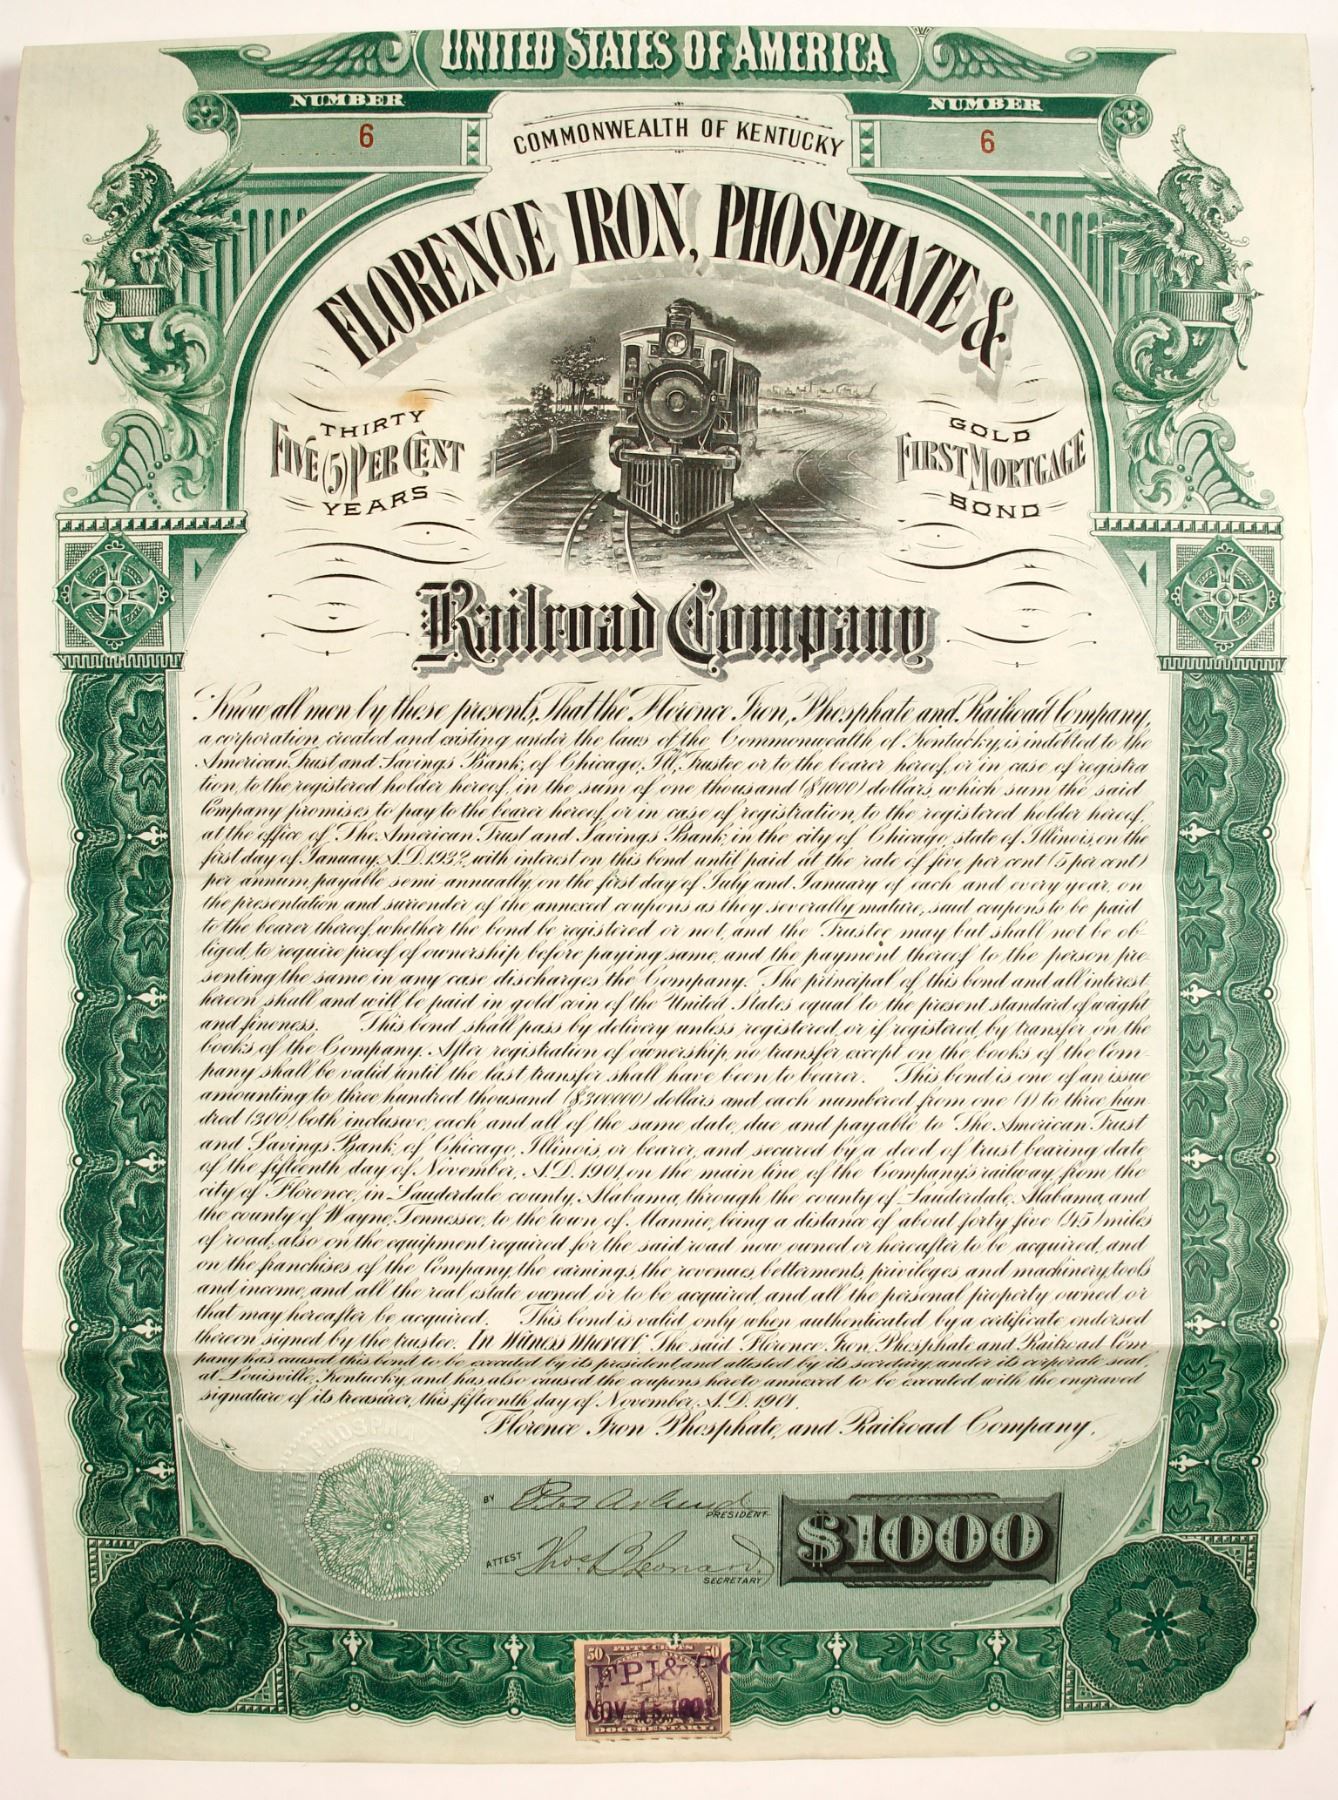 UNITED STATES OF AMERICA
NUMBER
6
NUMBER
6
COMMONWEALTH OF KENTUCKY
FLORENCE IRON, PHOSPHATE &
THIRTY
FIVE (5) PER CENT
YEARS
GOLD
FIRST MORTGAGE
BOND
Railroad Company
Know all men by these presents, That the Florence Iron, Phosphate and Railroad Company,
a corporation created and existing under the laws of the Commonwealth of Kentucky, is indebted to the
American Trust and Savings Bank, of Chicago, Ill., Trustee or to the bearer hereof, or in case of registra
tion, to the registered holder hereof, in the sum of one thousand ($1000) dollars, which sum the said
Company promises to pay to the bearer hereof, or in case of registration, to the registered holder hereof,
at the office of The American Trust and Savings Bank, in the city of Chicago, state of Illinois, on the
first day of January, A.D. 1932, with interest on this bond until paid at the rate of five per cent (5 per cent)
per annum, payable semi-annually, on the first day of July and January of each and every year, on
the presentation and surrender of the annexed coupons as they severally mature, said coupons to be paid
to the bearer thereof, whether the bond be registered or not, and the Trustee may but shall not be ob-
liged, to require proof of ownership before paying same, and the payment thereof to the person pre-
senting the same in any case discharges the Company. The principal of this bond and all interest
hereon shall and will be paid in gold coin of the United States equal to the present standard of weight
and fineness. This bond shall pass by delivery unless registered, or if registered, by transfer on the
books of the Company. After registration of ownership, no transfer except on the books of the Com-
pany shall be valid until the last transfer shall have been to bearer. This bond is one of an issue
amounting to three hundred thousand ($300000) dollars and each numbered from one (1) to three hun-
dred (300) both inclusive, each and all of the same date, due and payable to The American Trust
and Savings Bank, of Chicago, Illinois, or bearer, and secured by a deed of trust bearing date
of the fifteenth day of November, A.D. 1901, on the main line of the Company's railway, from the
city of Florence, in Lauderdale county, Alabama, through the county of Lauderdale, Alabama, and
the county of Wayne, Tennessee, to the town of Mannie, being a distance of about forty five (45) miles
of road, also on the equipment required for the said road now owned or hereafter to be acquired, and
on the franchises of the Company, the earnings, the revenues, betterments, privileges and machinery, tools
and income, and all the real estate owned or to be acquired, and all the personal property owned or
that may hereafter be acquired. This bond is valid only when authenticated by a certificate endorsed
thereon signed by the trustee. In Witness Whereof The said Florence Iron, Phosphate and Railroad Com-
pany has caused this bond to be executed by its president and attested by its secretary, under its corporate seal,
at Louisville, Kentucky, and has also caused the coupons hereto annexed to be executed with the engraved
signature of its treasurer, this fifteenth day of November, A.D. 1901.
Florence Iron Phosphate, and Railroad Company.
BY
PRESIDENT
ATTEST Thos. B. Leonard
SECRETARY
$1000
50 FIFTY CENTS 50
NOV 15 1901
DOCUMENTARY